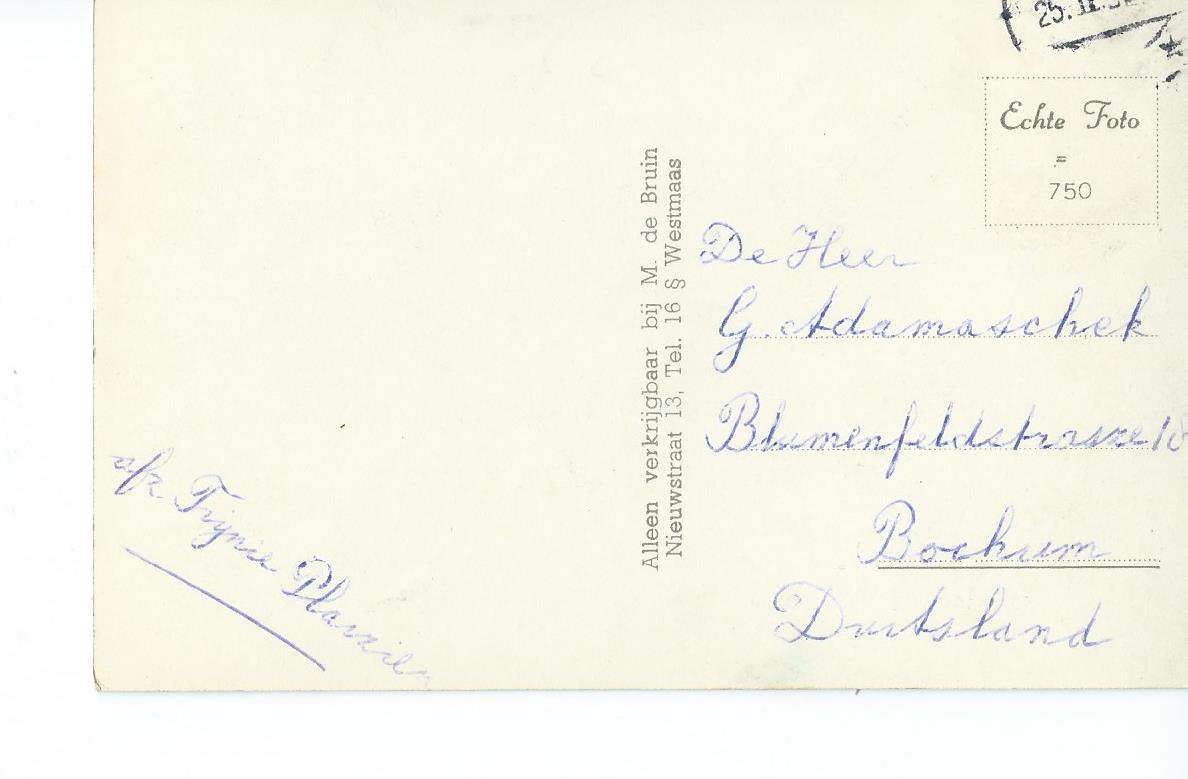 Echte Foto
=
750
Alleen verkrijgbaar bij M. de Bruin
Nieuwstraat 13, Tel. 16 § Westmaas
De Heer
G. Adamaschek
Blumenfeldstrasze 18
Bochum
Duitsland